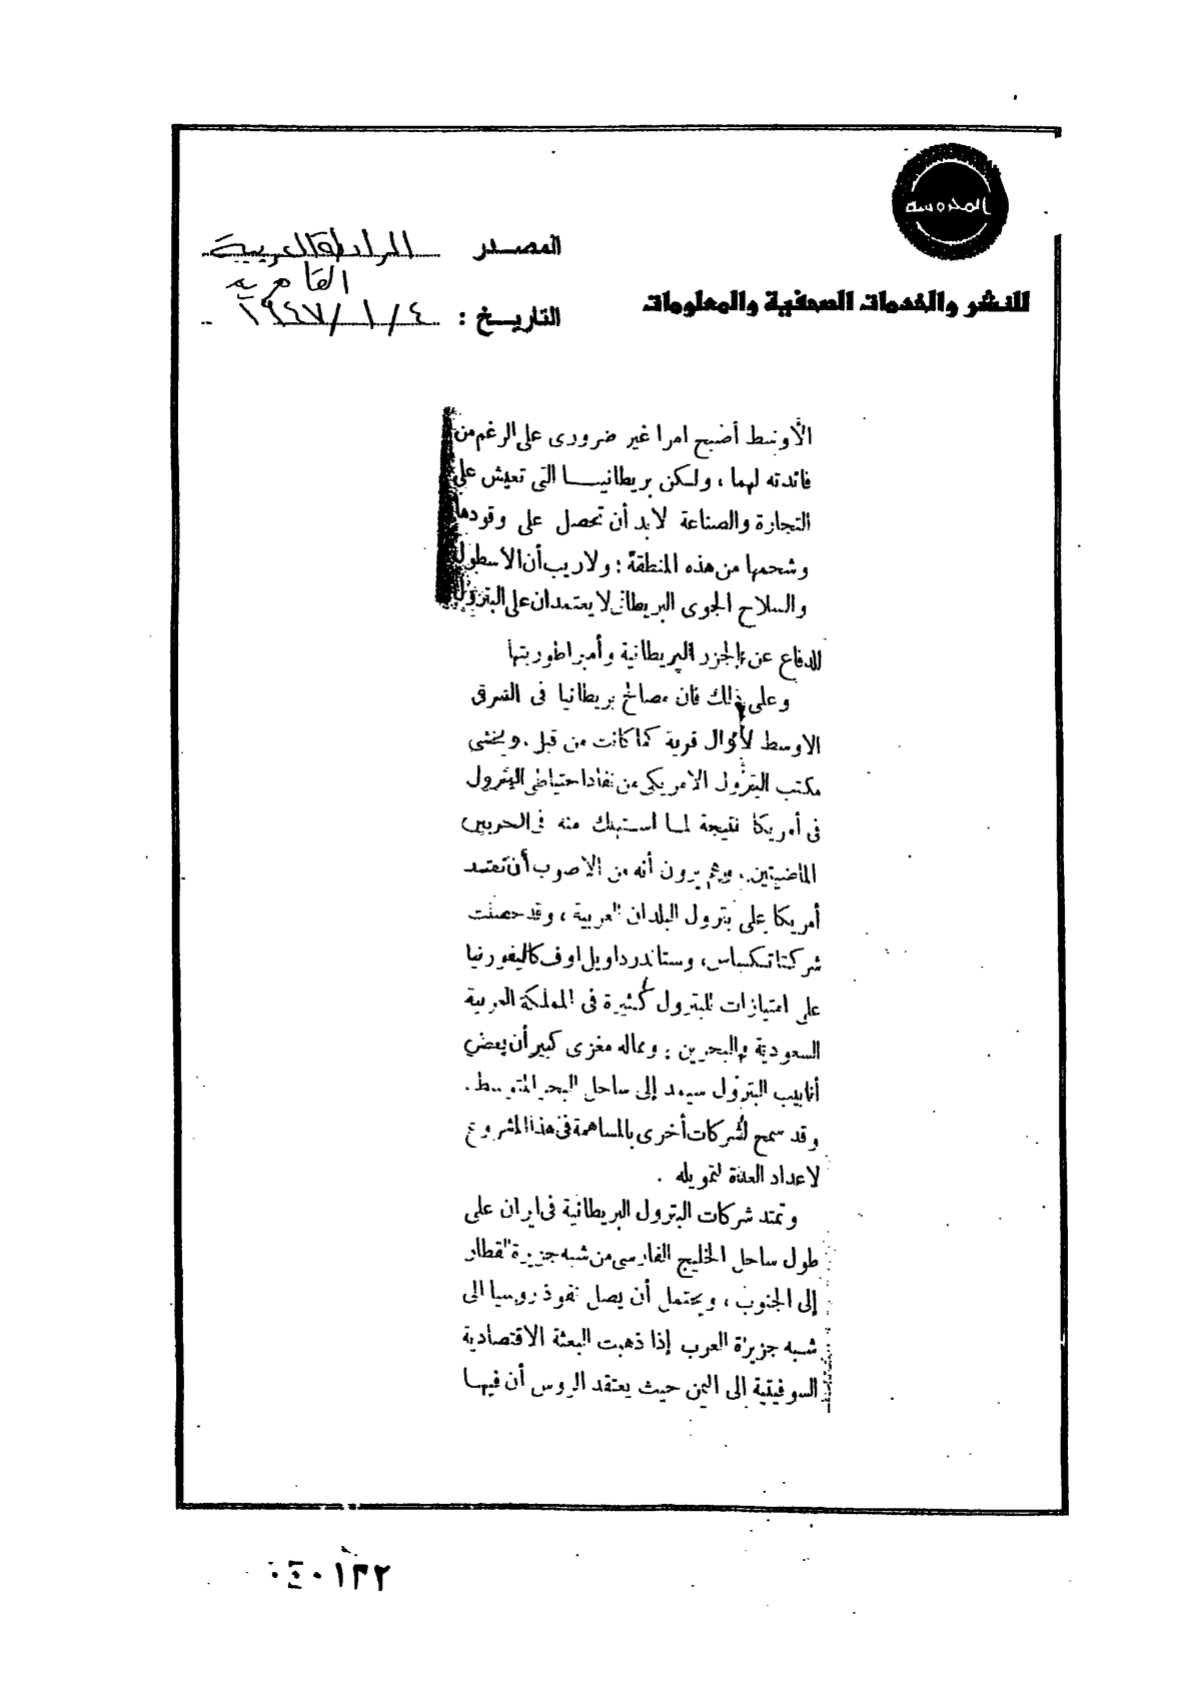 المحروسة
المصدر الرابطة العربية
القاهرية
للنشر والخدمات الصحفية والمعلومات
التاريخ : ٤/ ١/ ١٩٤٧
الأوسط أصبح امرا غير ضرورى على الرغم من
فائدته لهما ، ولكن بريطانيا التى تعيش على
التجارة والصناعة لابد أن تحصل على وقودها
وشحمها من هذه المنطقة ؛ ولا ريب أن الاسطول
والسلاح الجوى البريطانى لا يعتمدان على البترول
للدفاع عن الجزر البريطانية وأمبراطوريتها
وعلى ذلك فان مصالح بريطانيا فى الشرق
الاوسط لاتزال قوية كما كانت من قبل . ويخشى
مكتب البترول الامريكى من نفاد احتياطى البترول
فى أمريكا نتيجة لما استهلك منه فى الحربين
الماضيتين . وهم يرون أنه من الاصوب أن تعتمد
أمريكا على بترول البلدان العربية ، وقد حصلت
شركتا تكساس ، وستاندرد اويل اوف كاليفورنيا
على امتيازات للبترول كثيرة فى المملكة العربية
السعودية والبحرين ؛ ومماله مغزى كبير أن بعض
أنابيب البترول سيمد إلى ساحل البحر المتوسط .
وقد سمح لشركات أخرى بالمساهمة فى هذا المشروع
لاعداد العدة لتمويله .
وتمتد شركات البترول البريطانية فى ايران على
طول ساحل الخليج الفارسى من شبه جزيرة القطار
إلى الجنوب ، ويحتمل أن يصل نفوذ روسيا الى
شبه جزيرة العرب إذا ذهبت البعثة الاقتصادية
السوفيتية الى اليمن حيث يعتقد الروس أن فيها
٠٤٠١٣٢